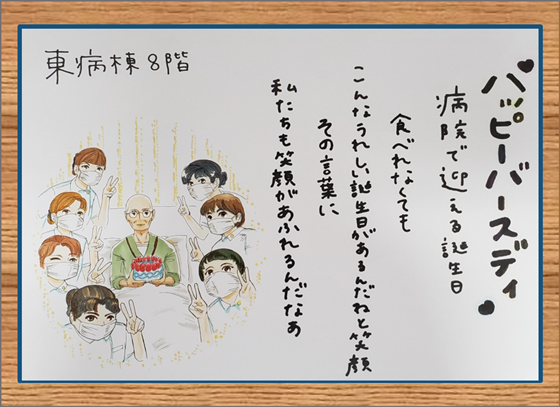 ハッピーバースディ
病院で迎える誕生日
食べれなくても
こんなうれしい誕生日があるんだねと笑顔
その言葉に
私たちも笑顔があふれるんだなあ
東病棟8階